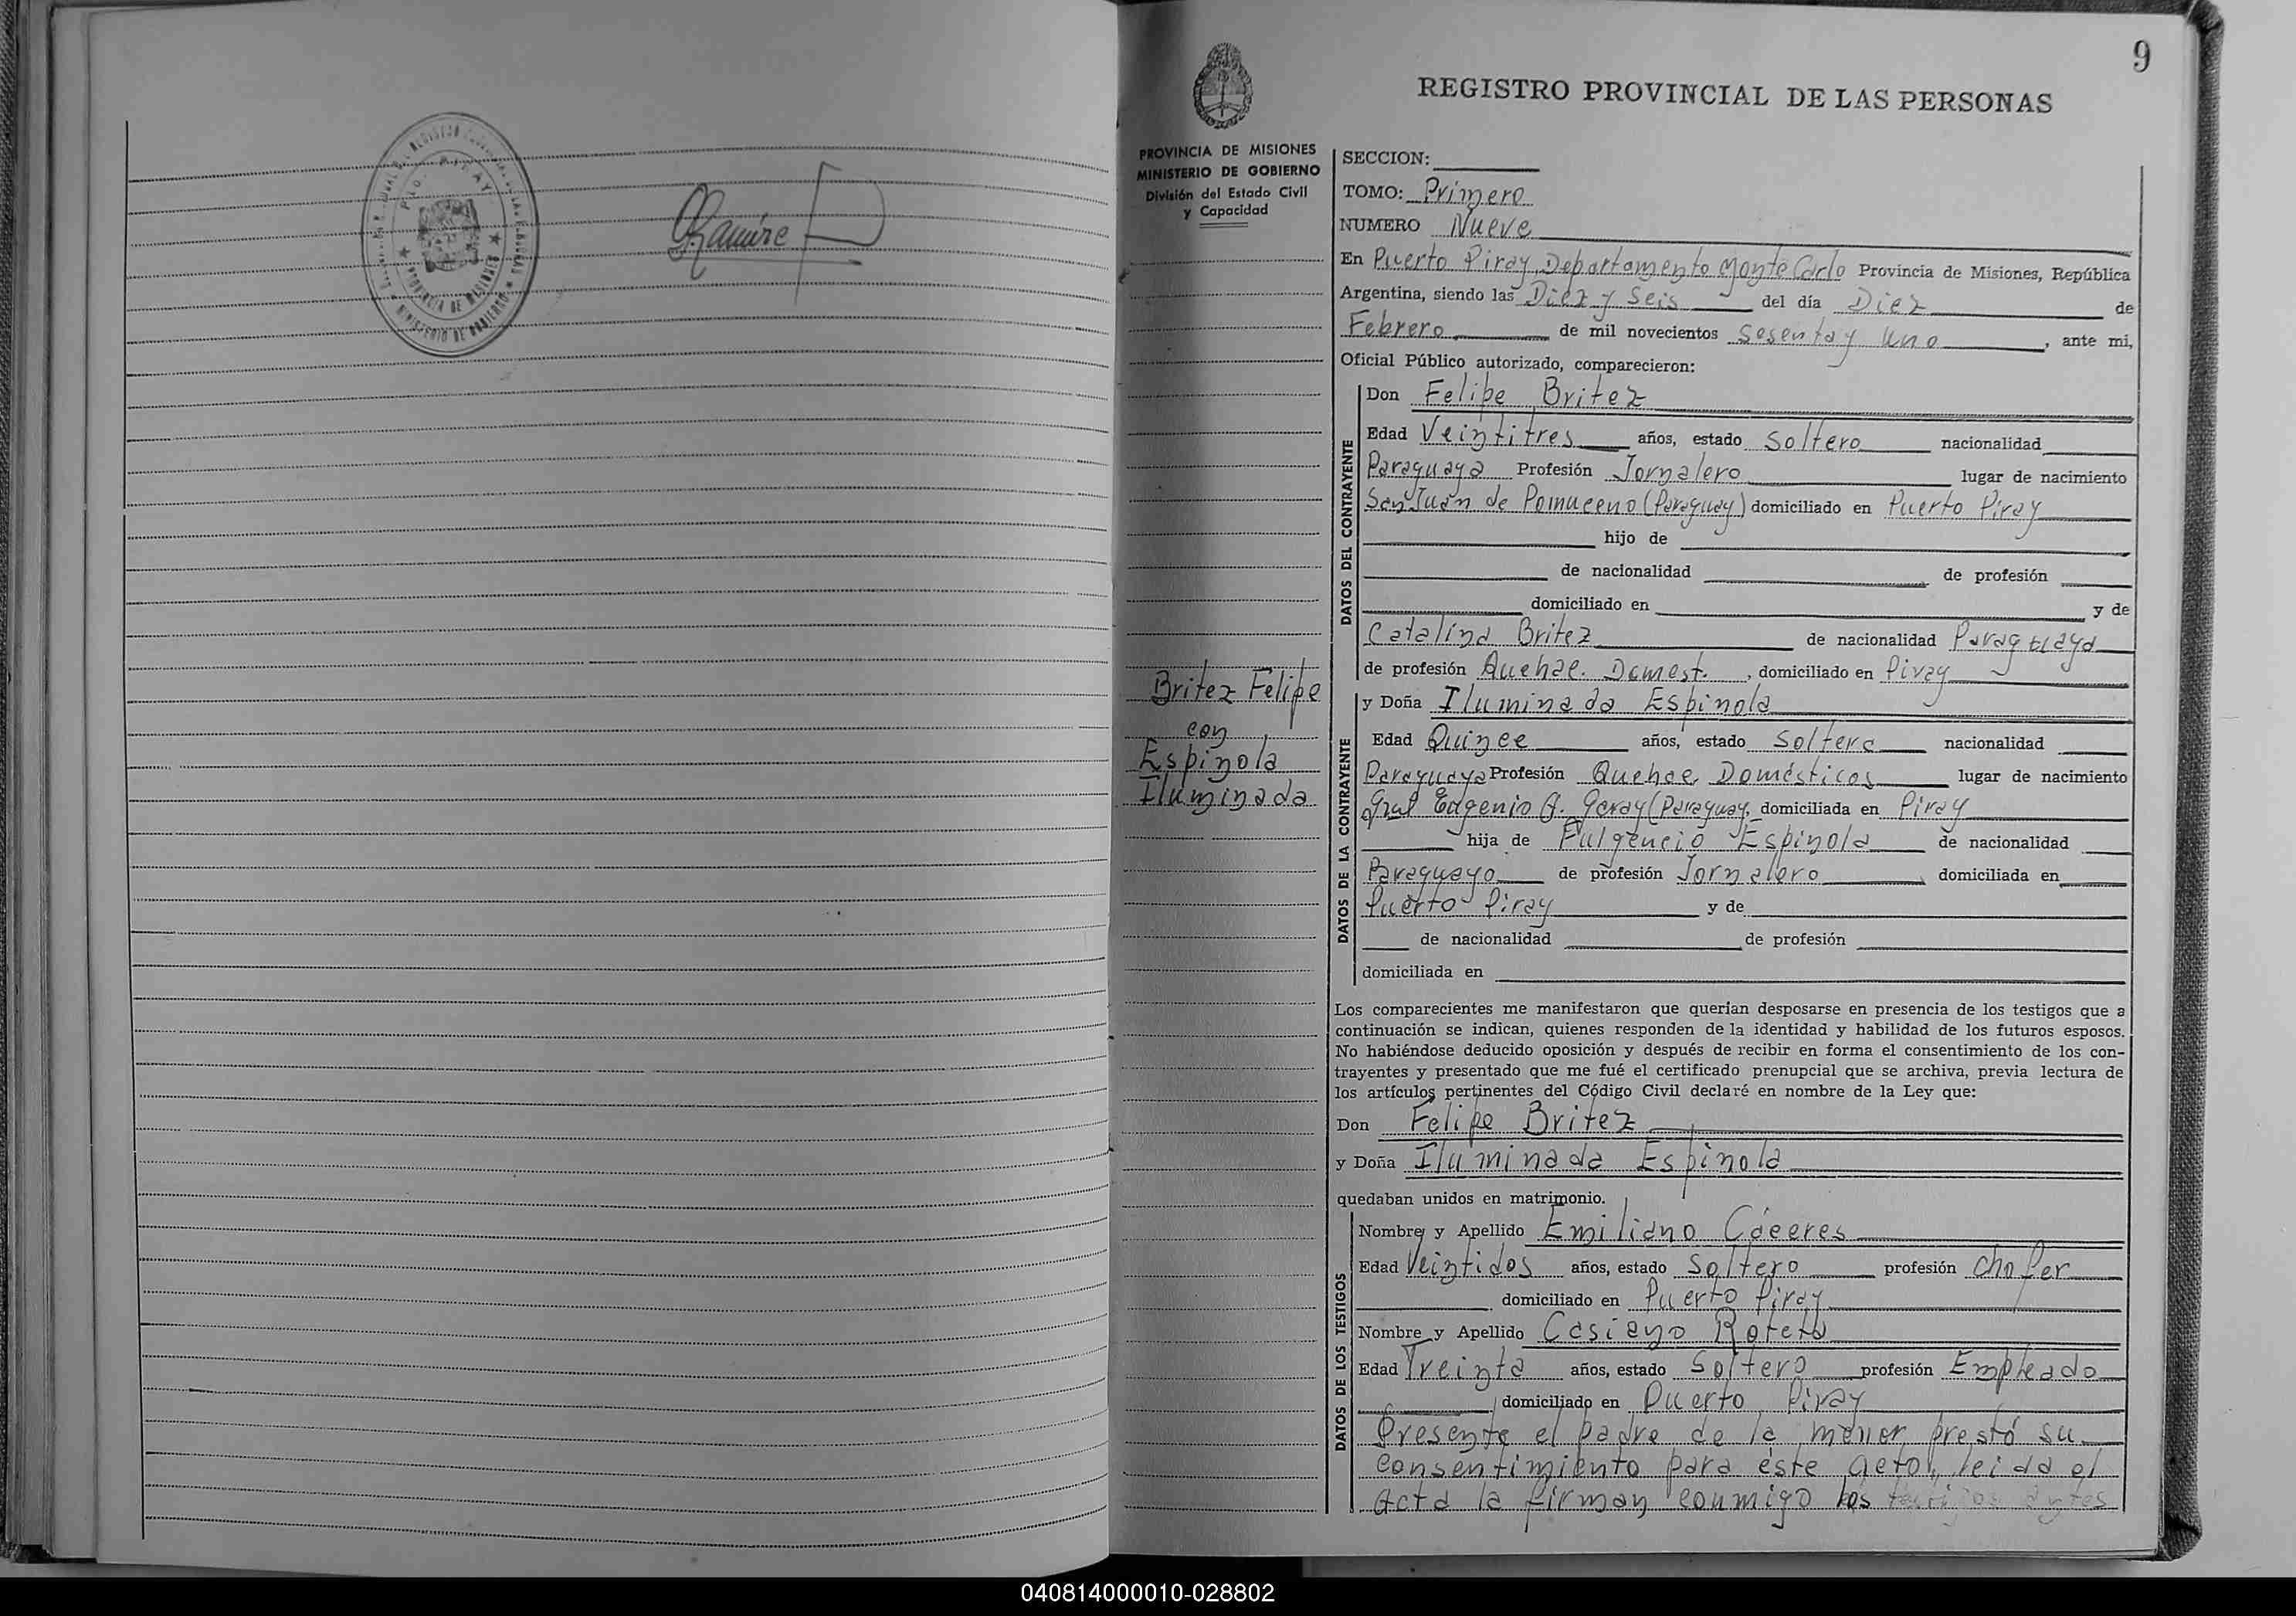 PCIA. MISIONES
9
REGISTRO PROVINCIAL DE LAS PERSONAS
PROVINCIA DE MISIONES
MINISTERIO DE GOBIERNO
División del Estado Civil
y Capacidad
SECCION:
TOMO: Primero
NUMERO Nueve
En Puerto Piray, Departamento Monte Carlo Provincia de Misiones, República
Argentina, siendo las Diez y Seis del día Diez de
Febrero de mil novecientos sesenta y uno, ante mi,
Oficial Público autorizado, comparecieron:
DATOS DEL CONTRAYENTE
Don Felipe Britez
Edad Veintitres años, estado soltero nacionalidad
Paraguaya Profesión Jornalero lugar de nacimiento
San Juan de Pomuceno (Paraguay) domiciliado en Puerto Piray
hijo de
de nacionalidad de profesión
domiciliado en y de
Catalina Britez de nacionalidad Paraguaya
de profesión Quehac. Domest., domiciliado en Piray
Britez Felipe
con
Espinola
Iluminada
y Doña Iluminada Espinola
DATOS DE LA CONTRAYENTE
Edad Quince años, estado Soltera nacionalidad
Paraguaya Profesión Quehac. Domésticos lugar de nacimiento
Gral Eugenio A. Garay (Paraguay, domiciliada en Piray
hija de Fulgencio Espinola de nacionalidad
Paraguayo de profesión Jornalero domiciliada en
Puerto Piray y de
de nacionalidad de profesión
domiciliada en
Los comparecientes me manifestaron que querían desposarse en presencia de los testigos que a
continuación se indican, quienes responden de la identidad y habilidad de los futuros esposos.
No habiéndose deducido oposición y después de recibir en forma el consentimiento de los con-
trayentes y presentado que me fué el certificado prenupcial que se archiva, previa lectura de
los artículos pertinentes del Código Civil declaré en nombre de la Ley que:
Don Felipe Britez
y Doña Iluminada Espinola
quedaban unidos en matrimonio.
DATOS DE LOS TESTIGOS
Nombre y Apellido Emiliano Cáceres
Edad Veintidos años, estado Soltero profesión chofer
domiciliado en Puerto Piray
Nombre y Apellido Casiano
Edad Treinta años, estado Soltero profesión Empleado
domiciliado en Puerto Piray
Presente el padre de la menor prestó su
consentimiento para éste acto, leida el
acta la firman conmigo los testigos antes
040814000010-028802